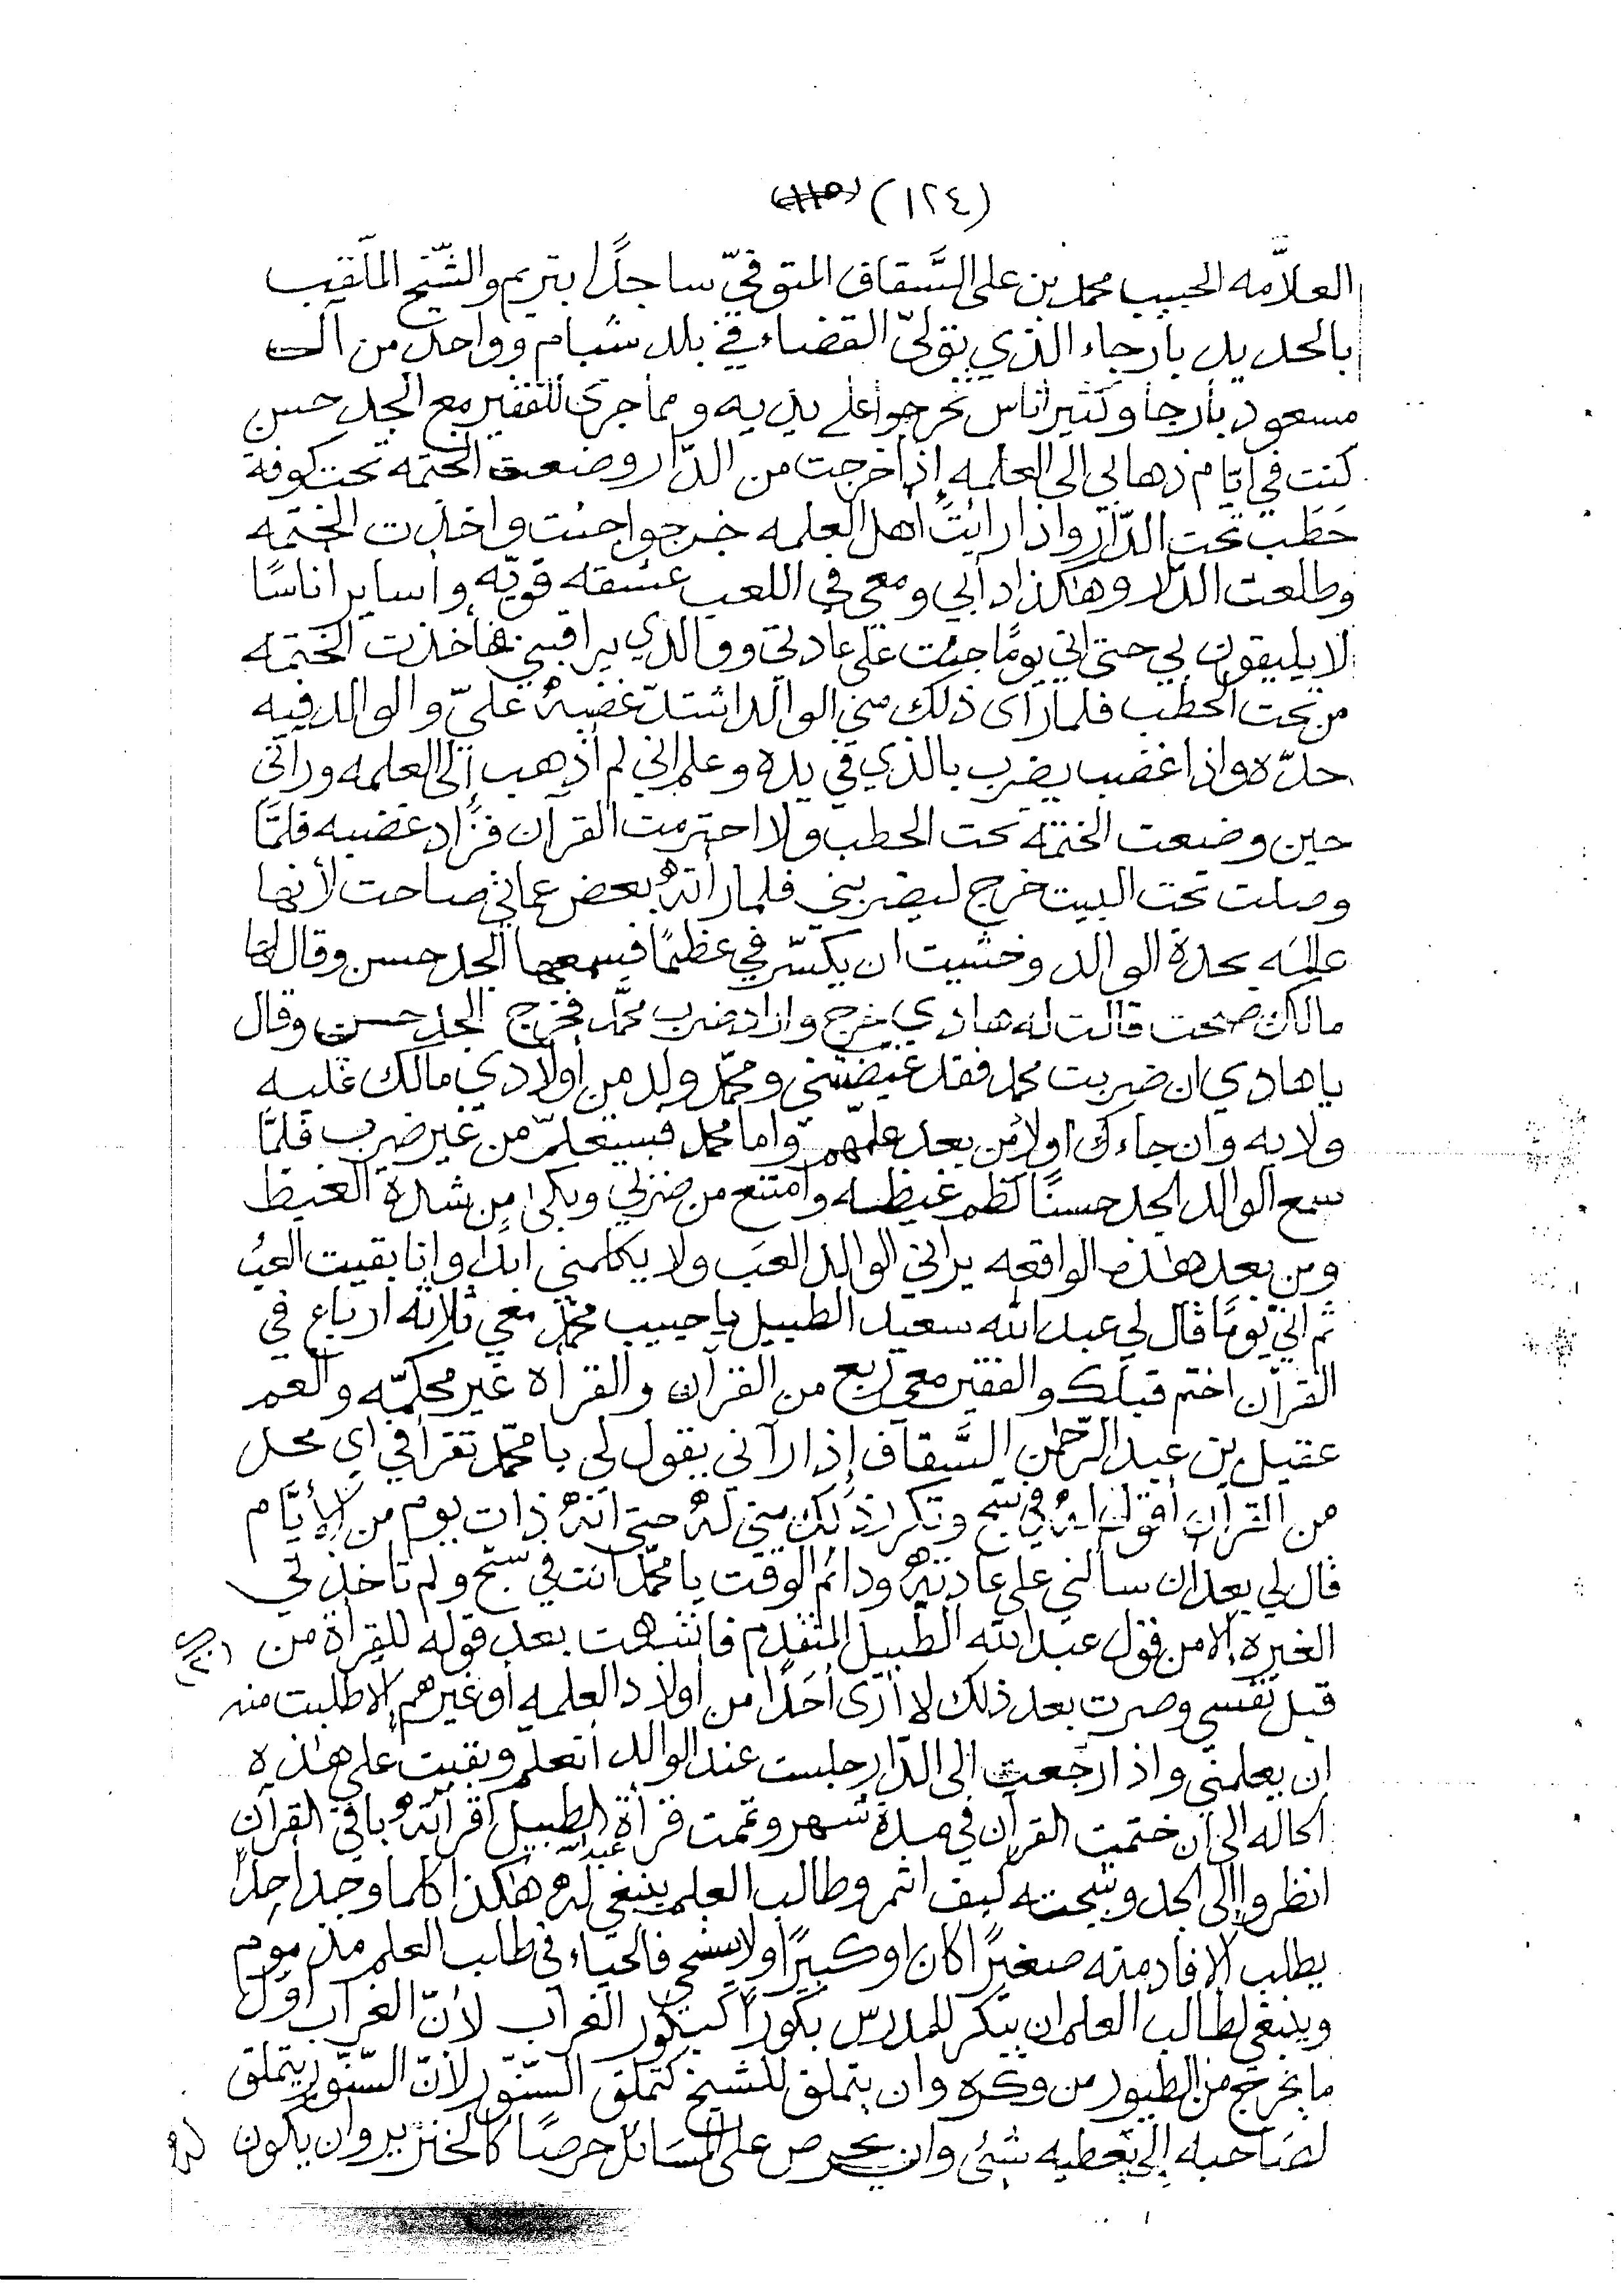 (١٢٤)
العلاَّمه الحبيب محمد بن على السَّقاف المتوفيّ ساجدًا بتريم والشّيخ الملَقب
بالحديد بارجاء الذي تولىّ القضاء في بلد شبام وواحد من آل
مسعود بارجا وكثير اناس تخرجوا على يديه ومما جرى للفقير مع الجد حسن
كنت في ايّام ذهابي الى العلمه إذا خرجت من الدّار وضعت الختمه تحت كوفة
حَطَب تحت الدّار واذا رايتً اهل العلمه خرجوا جئت واخذت الختمه
وطلعت الدار وهكذا دأبي ومعي في اللعب عشقه قويّه واساير اناسًا
لا يليقون بي حتى اني يومًا جئت على عادتي ووالدي يراقبني فأخذت الختمه
من تحت الحطب فلما رآى ذلك مني الوالد اشتدّ غضبهُ عليّ والوالد فيه
حدّه واذا غضب يضرب بالذي في يده وعلم اني لم أذهب إلى العلمه ورآني
حين وضعت الختمة تحت الحطب ولا احترمت القرآن فزاد غضبه فلمَّا
وصلت تحت البيت خرج ليضربني فلما رأتهُ بعض عماتي صاحت لأنها
عالمَه بحدة الوالد وخشيت ان يكسّر في عظمًا فسمعها الجد حسن وقال لها
مالك صحت قالت له هادي خرج واراد ضرب محمَّد فخرج الجد حسن وقال
يا هادي ان ضربت محمد فقد غيضتني ومحمّد ولد من أولادي مالك عليه
ولا به وان جاءك اولاد من بعد علمّهم واما محمد فسيتعلمّ من غير ضرب فلمَّا
سمع الوالد الجد حسنًا كظم غيظه وامتنع من ضربي وبكى من شدة الغيظ
ومن بعد هذه الواقعه يراني الوالد العَب ولا يكلمني ابدًا وانا بقيت العبُ
ثم انيّ يومًا قال لي عبد الله سعيد الطبيل يا حبيب محمّد معي ثلاثه ارباع في
القرآن اختم قبلك والفقير معي ربع من القرآن والقرأة غير محكمّه والعم
عقيل بن عبد الرّحمن السَّقاف إذا رآني يقول لي يا محمّد تقرأ في اي محل
من القرآن أقول لهُ في سبّح وتكرار ذلك مني لهُ حتى انهُ ذات يوم من الأيَّام
قال لي بعد ان سألني على عادتهُ ودائم الوقت يا محمّد انت في سبّح ولم تاخذني
الغيره إلا من قول عبد الله الطبيل المتقدم فانتبهت بعد قوله للقرأة من
قبل نفسي وصرت بعد ذلك لا أرى أحَدًا من أولاد العلمه أو غيرهم إلا طلبت منه
ان يعلمني واذا رجعت الى الدّار جلست عند الوالد أتعلم وبقيت على هٰذه
الحاله الى ان ختمت القرآن في مدة شهر وتممت قرأة عبد الله الطبيل اقرأتهُ باقي القرآن
انظروا إلى الجد ونتيجته كيف اثمر وطالب العلم ينبغي لهُ هٰكذا كلما وجد احدًا
يطلب الافاد منه صغيرًا كان او كبيرًا ولا يستحي فالحياء في طالب العلم مذموم
وينبغي لطالب العلم ان يبكر للمدرس بكورًا كبكور الغراب لأنّ الغراب اول
ما يخرج من الطيور من وكره وان يتملق للشيخ كتملق السّنّور لأنّ السّنّور يتملق
لصَاحبه إلى يعطيه شئ وان يحرص على المسَائل حرصًا كالخنزير وان يكون